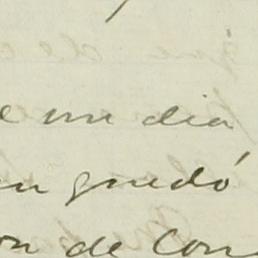 e un dia
n quedó
on de con